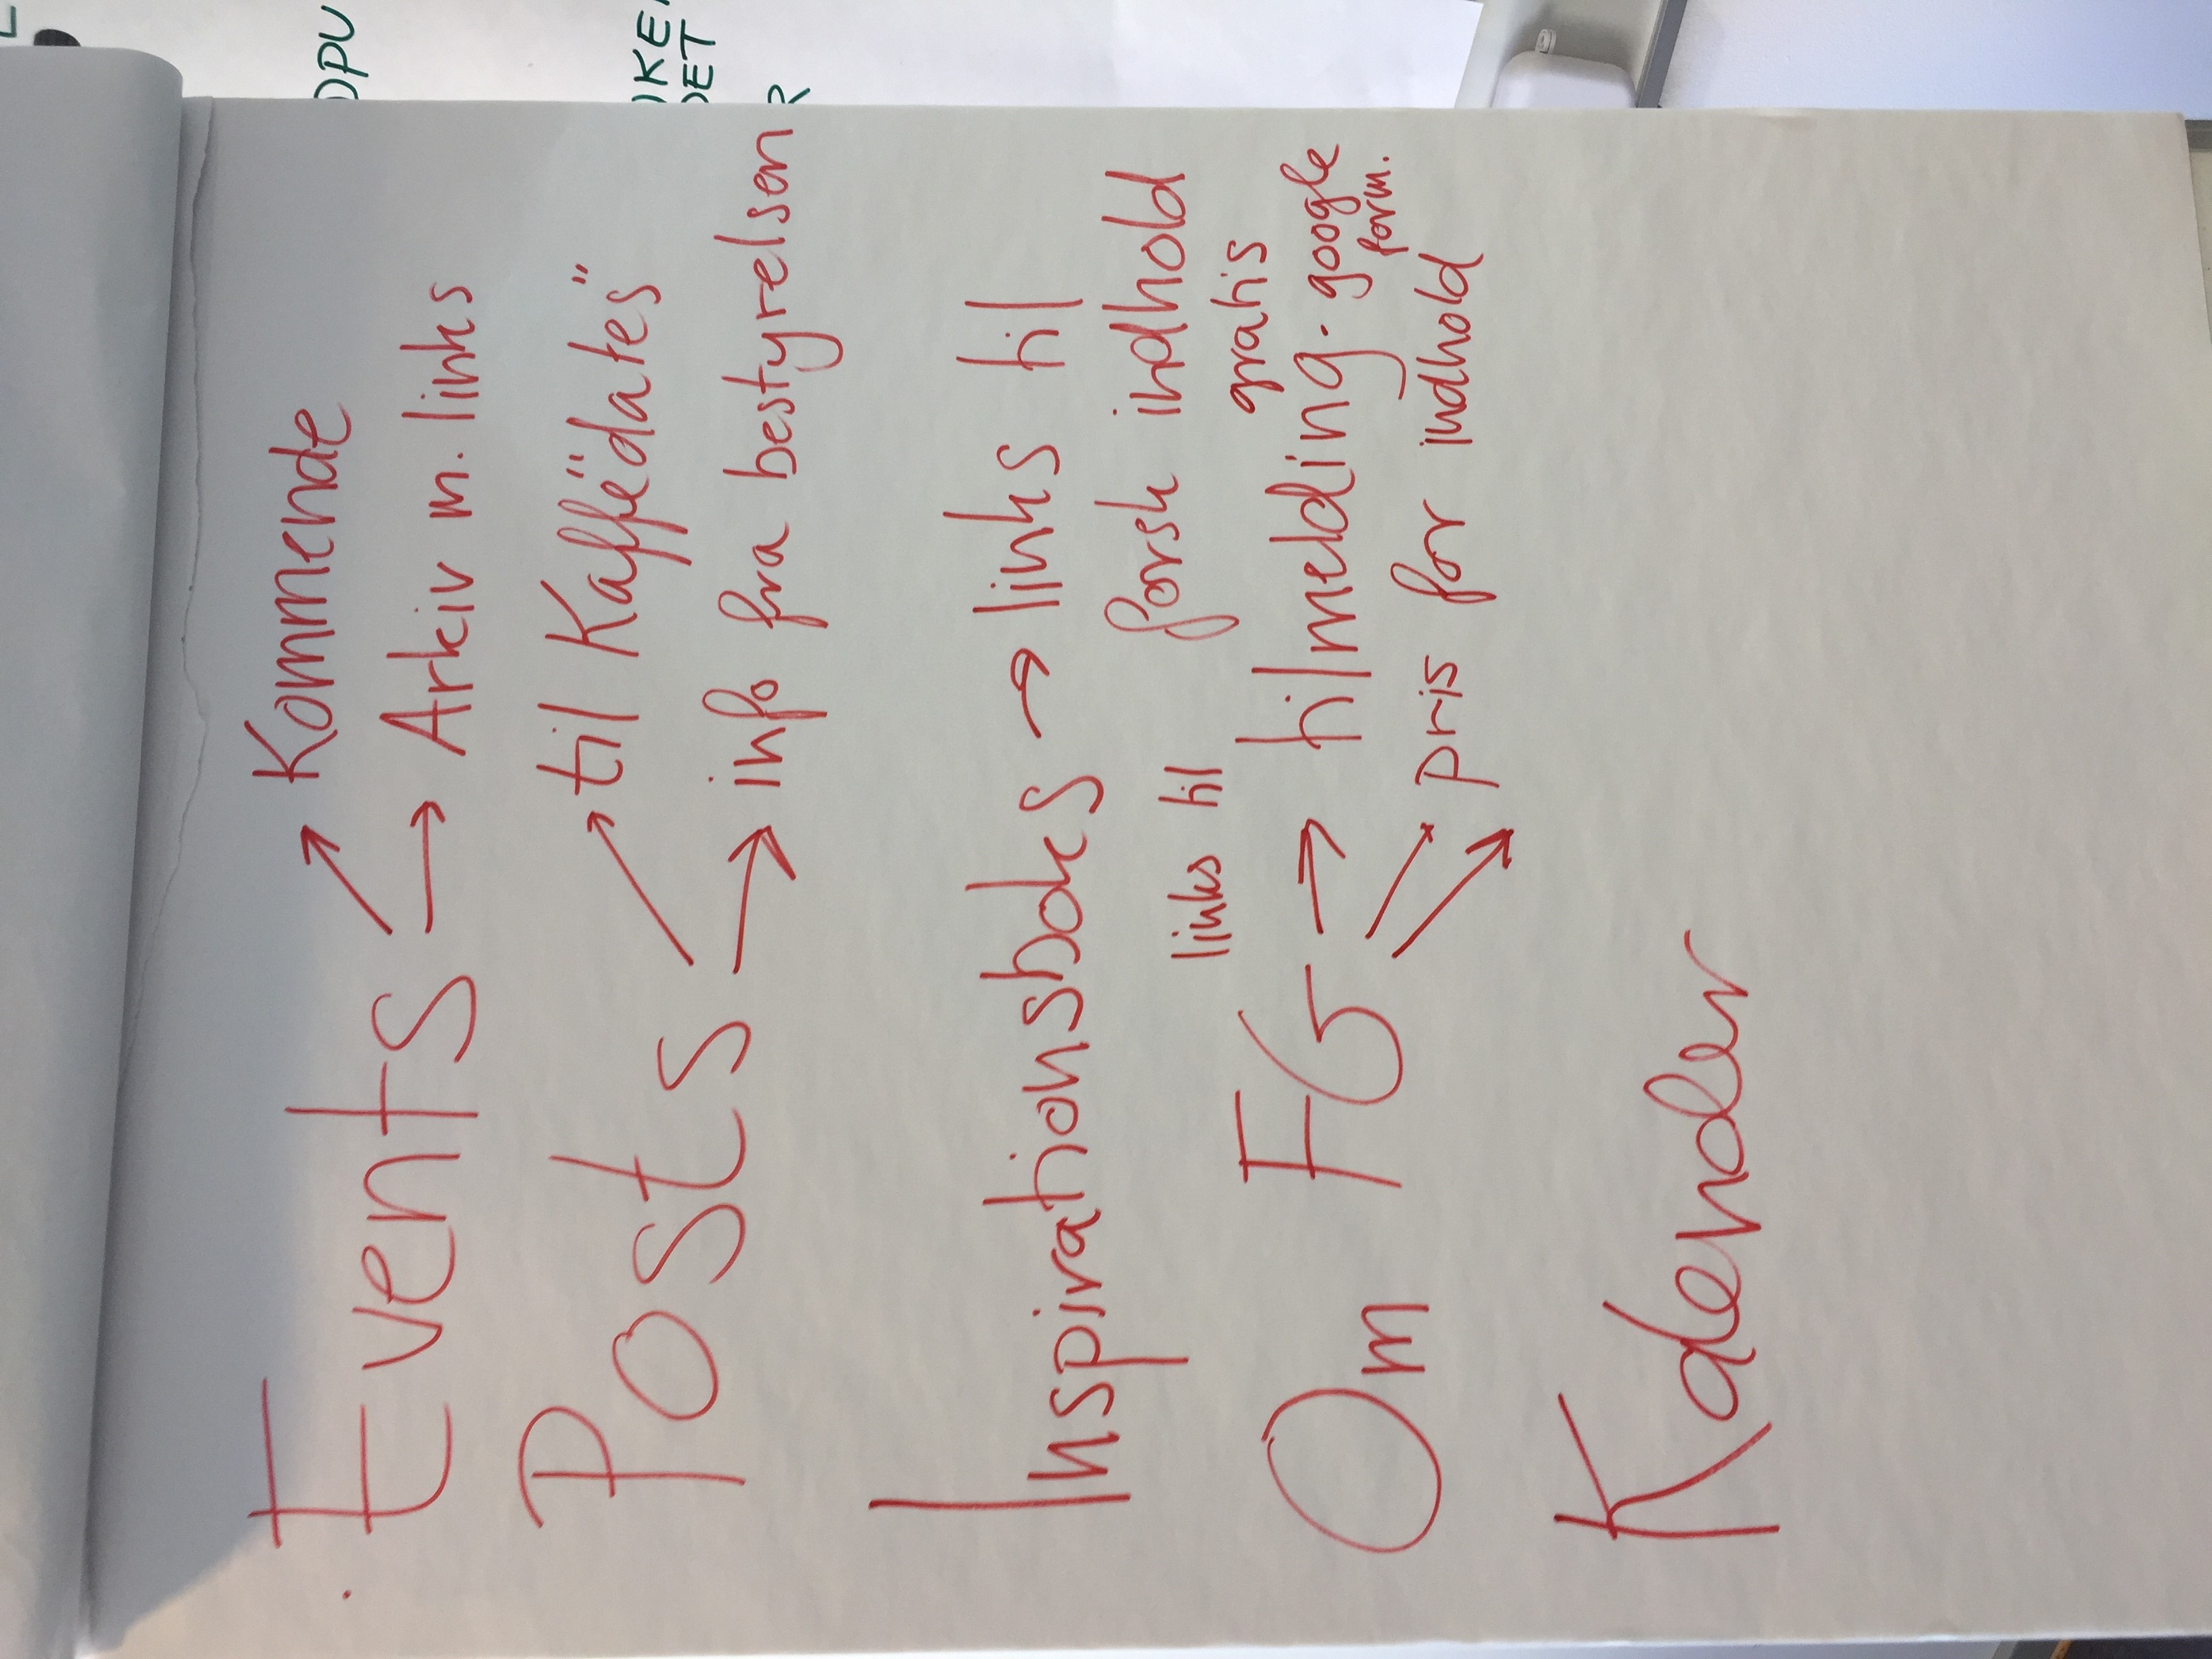 Events → Kommende
→ Arkiv m. links
Posts → til Kaffe"dates"
→ info fra bestyrelsen
Inspirationsboks → links til
forsk indhold
links til
gratis
Om FG → tilmelding - google
form.
→ pris for indhold
→
Kalender
OPU
KE
DET
R